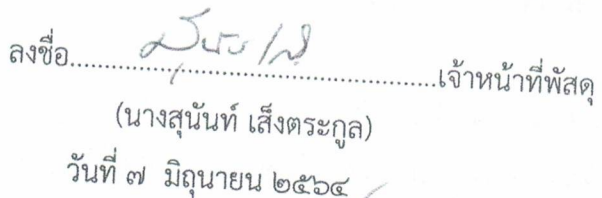 ลงชื่อ.......................................................เจ้าหน้าที่พัสดุ
(นางสุนันท์ เส็งตระกูล)
วันที่ ๗ มิถุนายน ๒๕๖๔